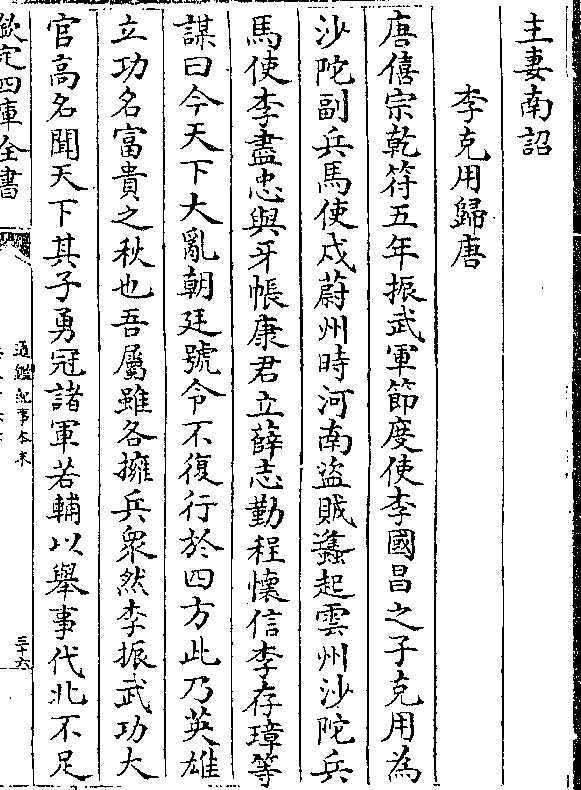 主妻南詔
李克用歸唐
唐僖宗乾符五年振武軍節度使李國昌之子克用為
沙陀副兵馬使戍蔚州時河南盜賊蠭起雲州沙陀兵
馬使李盡忠與牙帳康君立薛志勤程懐信李存璋等
謀曰今天下大亂朝廷號令不復行於四方此乃英雄
立功名富貴之秋也吾屬雖各擁兵衆然李振武功大
官高名聞天下其子勇冠諸軍若輔以舉事代北不足
欽定四庫全書
通鑑紀事本末
三十六